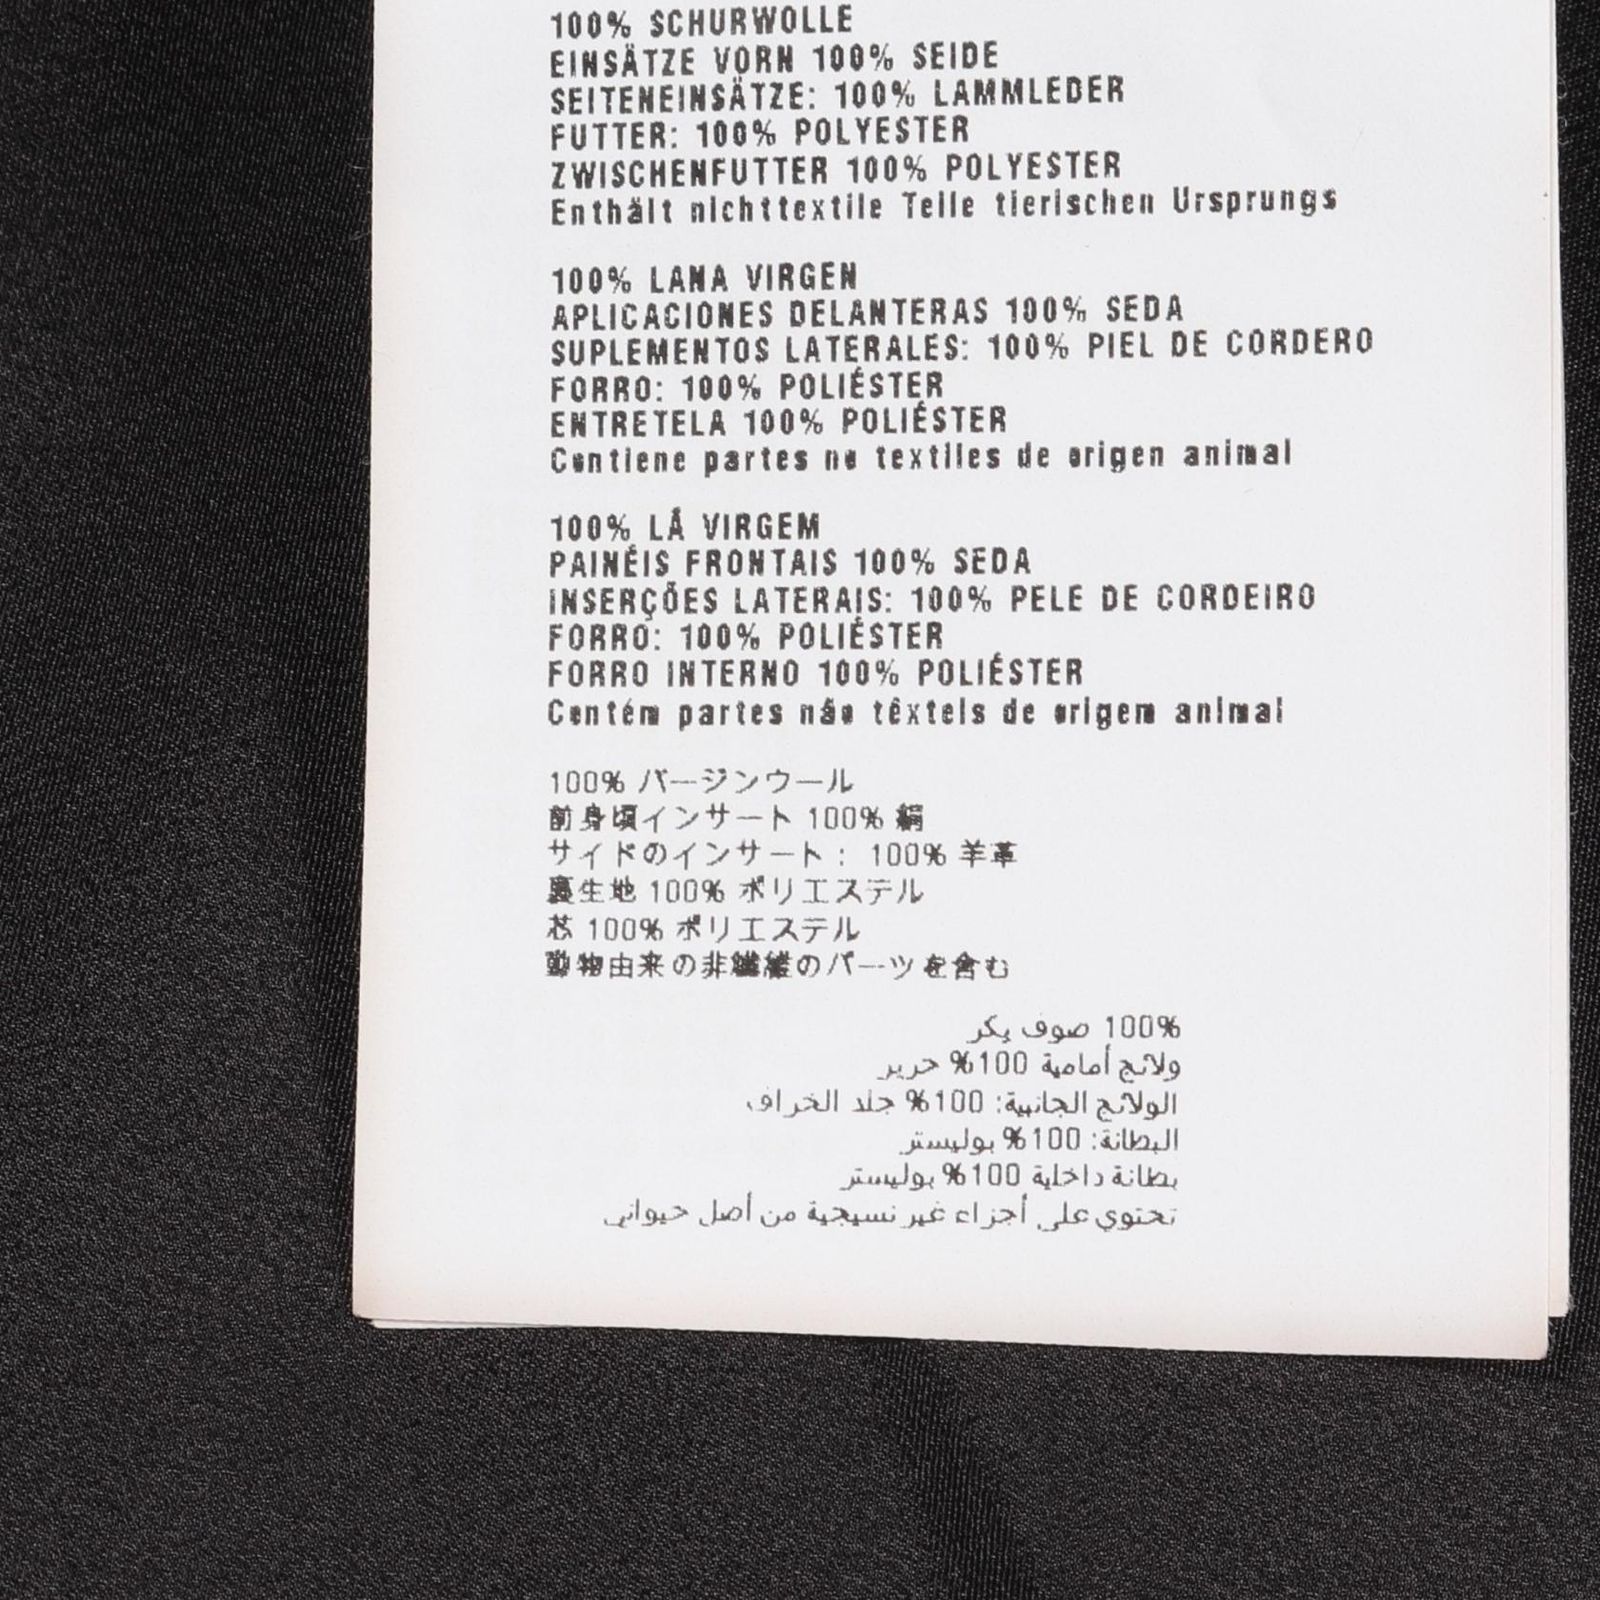 100% SCHURWOLLE
EINSÄTZE VORN 100% SEIDE
SEITENEINSÄTZE: 100% LAMMLEDER
FUTTER: 100% POLYESTER
ZWISCHENFUTTER 100% POLYESTER
Enthält nichttextile Teile tierischen Ursprungs
100% LANA VIRGEN
APLICACIONES DELANTERAS 100% SEDA
SUPLEMENTOS LATERALES: 100% PIEL DE CORDERO
FORRO: 100% POLIÉSTER
ENTRETELA 100% POLIÉSTER
Contiene partes no textiles de origen animal
100% LÃ VIRGEM
PAINÉIS FRONTAIS 100% SEDA
INSERÇÕES LATERAIS: 100% PELE DE CORDEIRO
FORRO: 100% POLIÉSTER
FORRO INTERNO 100% POLIÉSTER
Contém partes não têxteis de origem animal
100% バージンウール
前身頃インサート 100% 絹
サイドのインサート: 100% 羊革
裏生地 100% ポリエステル
芯 100% ポリエステル
動物由来の非繊維のパーツを含む
100% صوف بكر
ولائج أمامية 100% حرير
الولائج الجانبية: 100% جلد الخراف
البطانة: 100% بوليستر
بطانة داخلية 100% بوليستر
تحتوي على أجزاء غير نسيجية من أصل حيواني